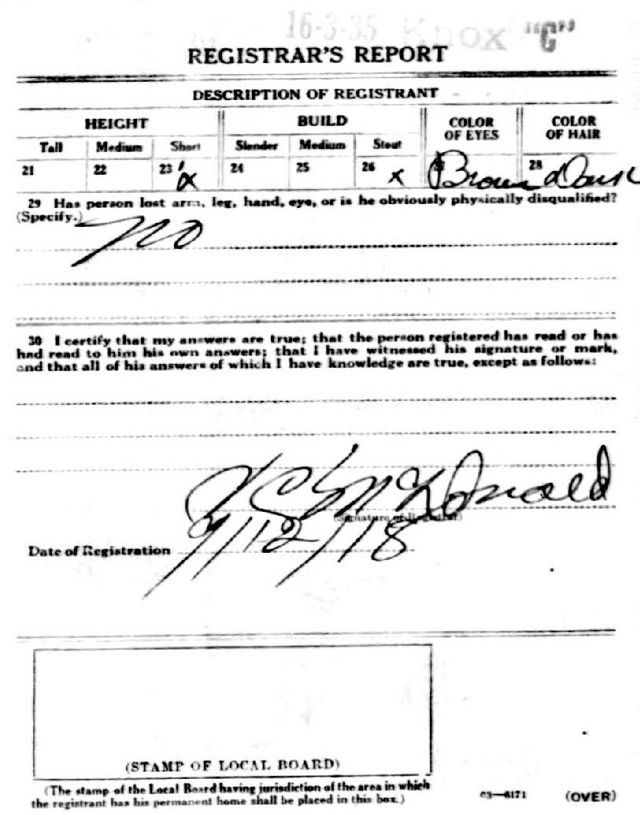 16-3-35 Knox "C"
REGISTRAR'S REPORT
DESCRIPTION OF REGISTRANT
HEIGHT BUILD COLOR OF EYES COLOR OF HAIR
Tall Medium Short Slender Medium Stout
21 22 23 x 24 25 26 x 27 Brown 28 Dark
29 Has person lost arm, leg, hand, eye, or is he obviously physically disqualified?
(Specify.) no
30 I certify that my answers are true; that the person registered has read or has
had read to him his own answers; that I have witnessed his signature or mark,
and that all of his answers of which I have knowledge are true, except as follows:
McDonald
(Signature of Registrar)
Date of Registration 9/12/18
(STAMP OF LOCAL BOARD)
(The stamp of the Local Board having jurisdiction of the area in which
the registrant has his permanent home shall be placed in this box.)
03—6171 (OVER)